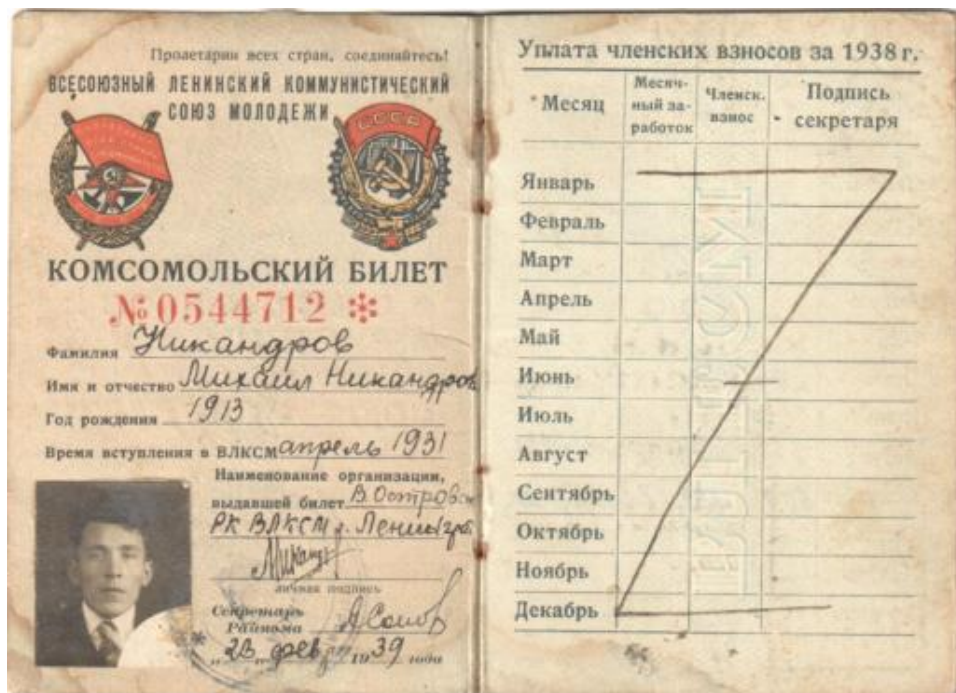 Пролетарии всех стран, соединяйтесь!
ВСЕСОЮЗНЫЙ ЛЕНИНСКИЙ КОММУНИСТИЧЕСКИЙ
СОЮЗ МОЛОДЕЖИ
СССР
КОМСОМОЛЬСКИЙ БИЛЕТ
№ 0544712 *
Фамилия Никандров
Имя и отчество Михаил Никандров
Год рождения 1913
Время вступления в ВЛКСМ апрель 1931
Наименование организации,
выдавшей билет В. Островск
РК ВЛКСМ г. Ленинград
личная подпись
Секретарь
Райкома
„23„ февр 1939 года
Уплата членских взносов за 1938 г.
Месяц
Месяч-
ный за-
работок
Членск.
взнос
Подпись
секретаря
Январь
Февраль
Март
Апрель
Май
Июнь
Июль
Август
Сентябрь
Октябрь
Ноябрь
Декабрь